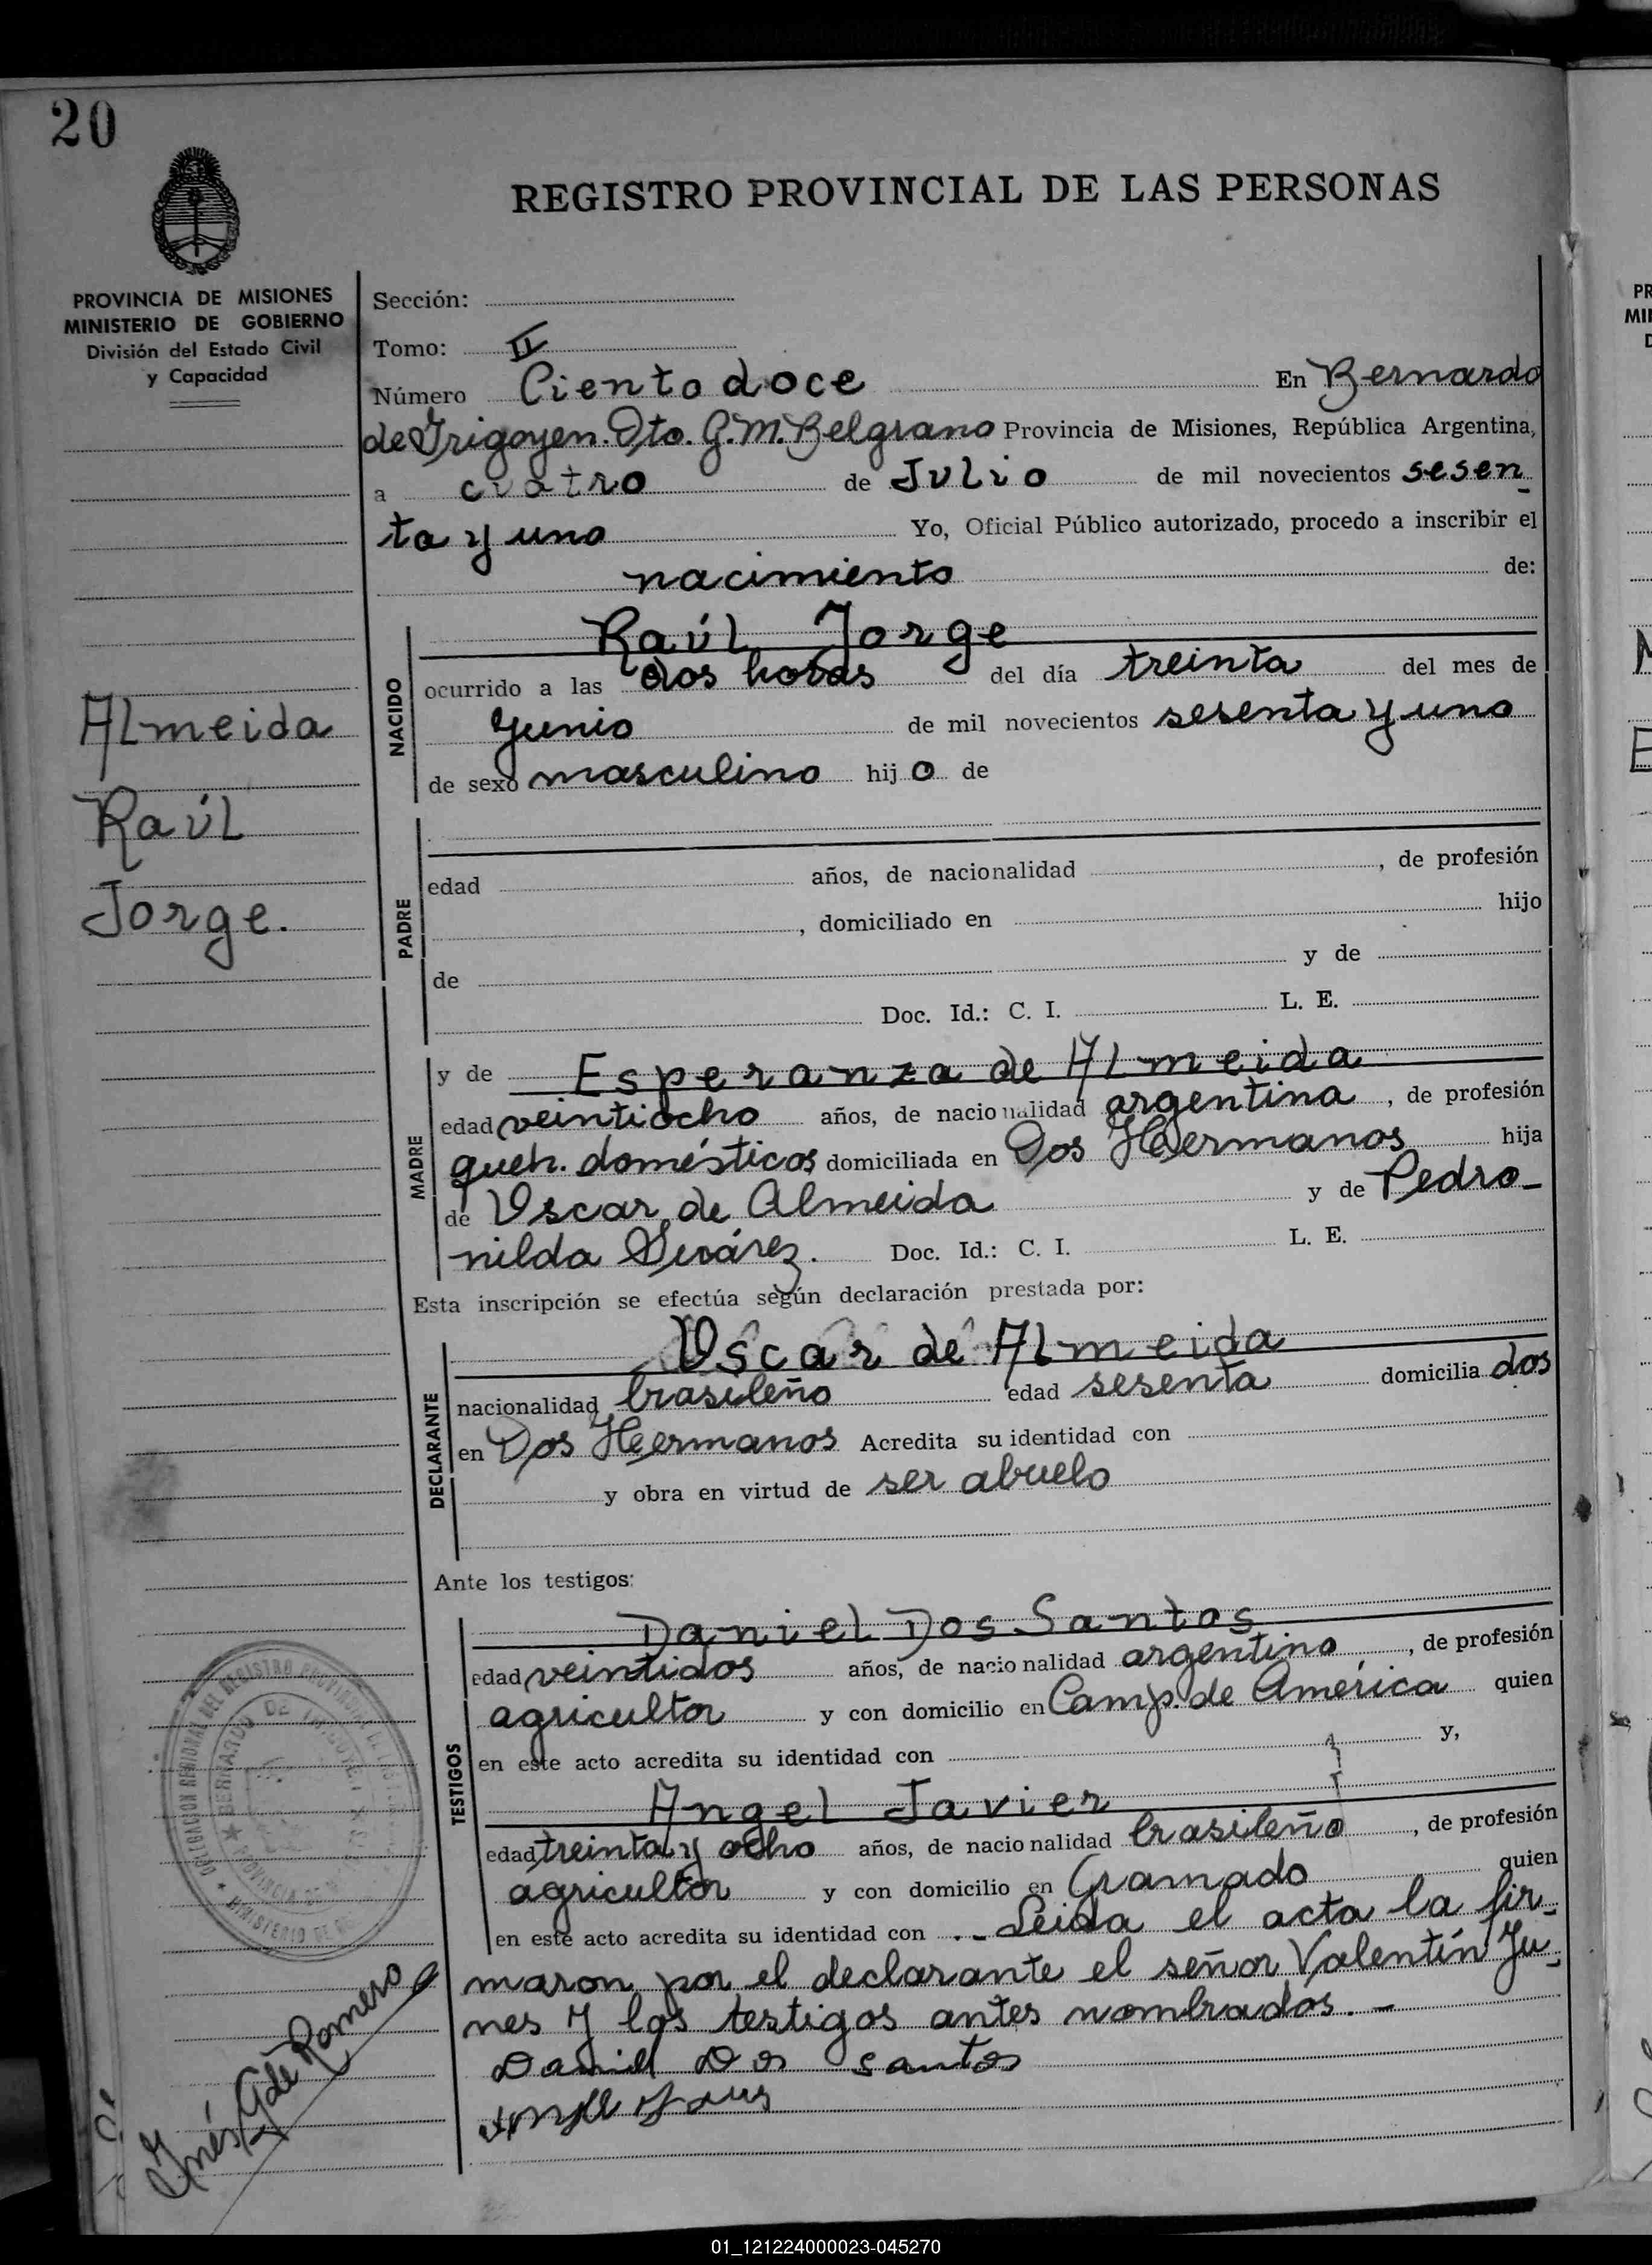 20
REGISTRO PROVINCIAL DE LAS PERSONAS
PROVINCIA DE MISIONES
MINISTERIO DE GOBIERNO
División del Estado Civil
y Capacidad
Sección:
Tomo: II
Número Ciento doce En Bernardo
de Irigoyen. Dto. G. M. Belgrano Provincia de Misiones, República Argentina,
a cuatro de Julio de mil novecientos sesen
ta y uno Yo, Oficial Público autorizado, procedo a inscribir el
nacimiento de:
Almeida
Raúl
Jorge.
NACIDO
Raúl Jorge
ocurrido a las dos horas del día treinta del mes de
Junio de mil novecientos sesenta y uno
de sexo masculino hijo de
PADRE
edad años, de nacionalidad , de profesión
, domiciliado en hijo
de y de
Doc. Id.: C. I. L. E.
MADRE
y de Esperanza de Almeida
edad veintiocho años, de nacionalidad argentina , de profesión
queh. domésticos domiciliada en Dos Hermanos hija
de Oscar de Almeida y de Pedro-
nilda . Doc. Id.: C. I. L. E.
Esta inscripción se efectúa según declaración prestada por:
DECLARANTE
Oscar de Almeida
nacionalidad brasileño edad sesenta domicilia dos
en Dos Hermanos Acredita su identidad con
y obra en virtud de ser abuelo
Ante los testigos:
TESTIGOS
Daniel Dos Santos
edad veintidos años, de nacionalidad argentino , de profesión
agricultor y con domicilio en Camp. de América quien
en este acto acredita su identidad con y,
Angel Javier
edad treinta y ocho años, de nacionalidad brasileño , de profesión
agricultor y con domicilio en Gramado quien
en este acto acredita su identidad con .- Leida el acta la fir-
maron por el declarante el señor Valentín Ju-
nes y los testigos antes nombrados. -
Daniel Dos santos
DELEGACION REGIONAL DEL REGISTRO PROVINCIAL DE LAS
BERNARDO DE IRIGOYEN
PROVINCIA DE
MINISTERIO DE
Inés G. de Romero
PR
MI
01_121224000023-045270